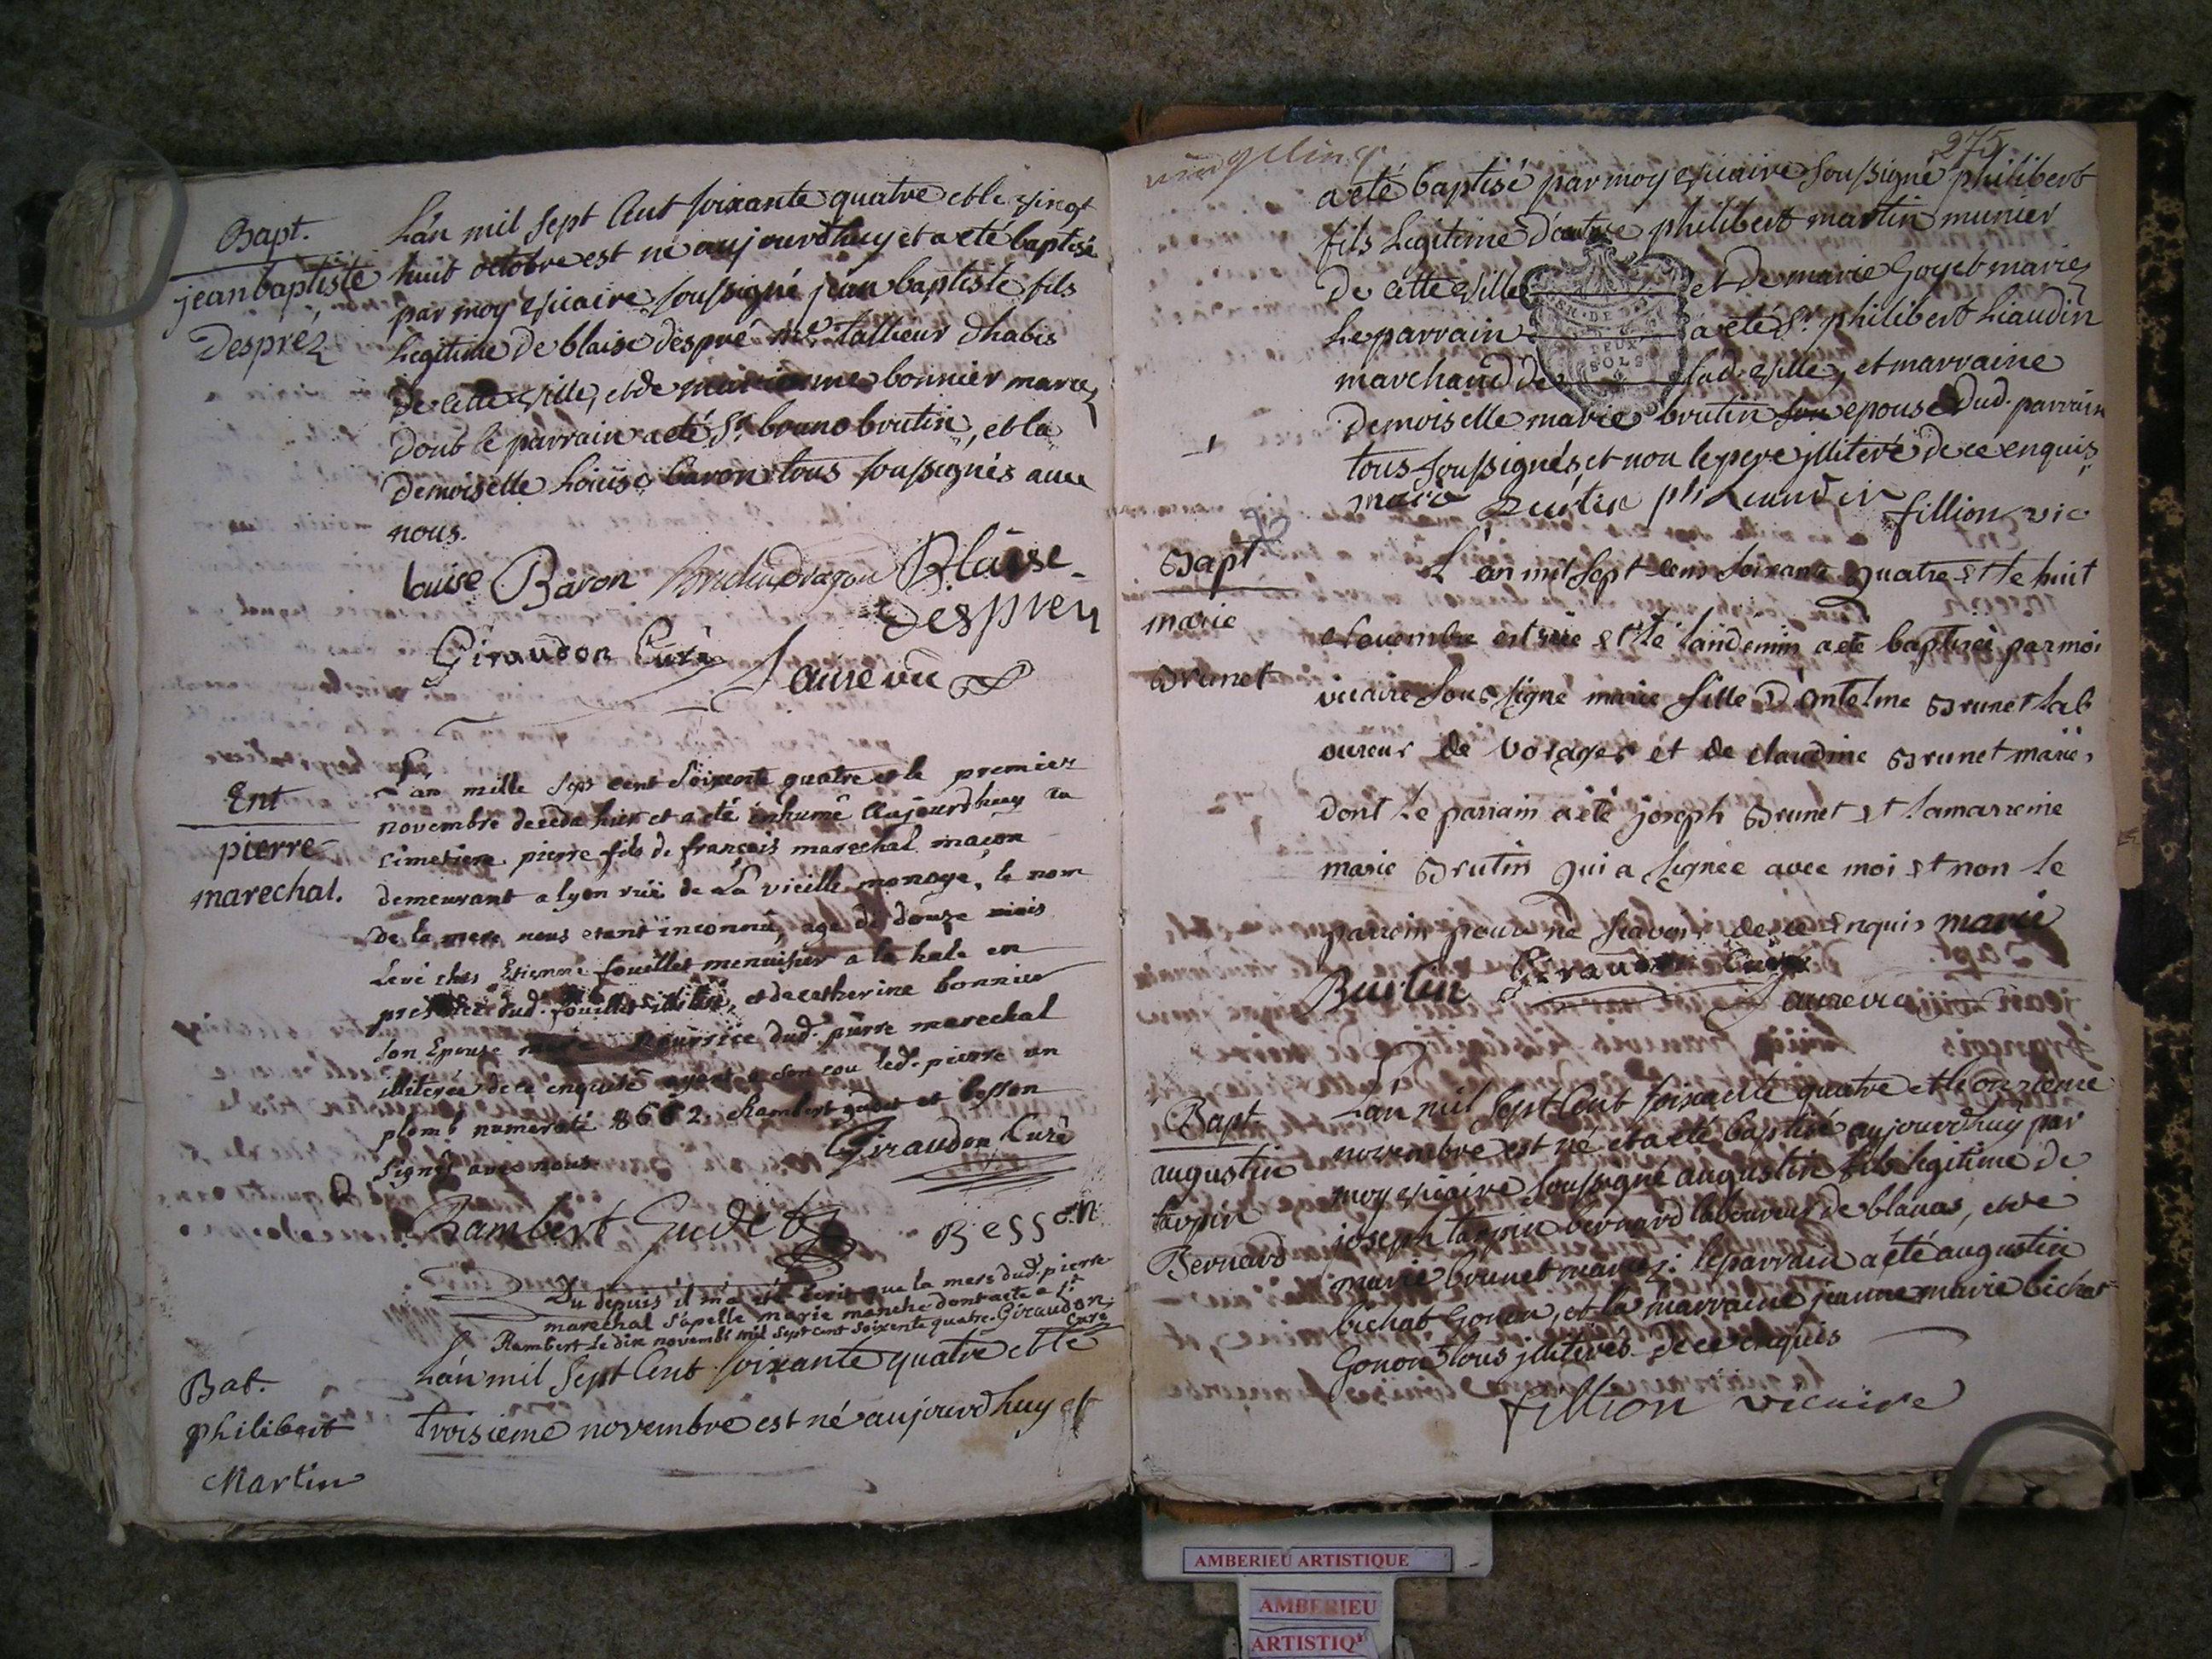 Bapt.
jean baptiste
Desprez
L'an mil sept Cent soixante quatre et le vingt
huit octobre est né aujourdhuy et a eté baptisé
par moy vicaire soussigné jean baptiste fils
Legitime de blaise despré me. tallieur dhabis
de cette ville, et de marianne bonnier mariez
dont le parrain a eté Sr. bruno brutin, et la
demoiselle Louise baron tous soussignés avec
nous.
louise Baron Blaise
Desprey
Giraudon Curé
Ent
pierre
marechal.
L'an mille sept cent soixente quatre et le premier
novembre deceda hier et a eté inhumé aujourdhuy au
cimetiere pierre fils de françois marechal maçon
demeurant a lyon rüe de La vieille monoye, le nom
de la mere nous etant inconnu, agé de douze mois
Levé ches Etienne fouillet menuisier a la hale en
presence dud. fouillet et de catherine bonnier
son Epouse nourrice dud. pierre marechal
illiterés de ce enquis ayent a son cou led. pierre un
plomb numeroté 8662. Rambert gudet et besson
signés avec nous.
Giraudon Curé
Rambert Gudet
Besson
Du depuis il m'a eté ecrit que la mere dud. pierre
marechal s'apelle marie manche dont acte a St.
Rambert Le dix novembre mil sept cent soixente quatre. Giraudon
Curé
Bat.
philibert
Martin
L'an mil sept Cent soixante quatre et le
troisieme novembre est né aujourdhuy et
275
a eté baptisé par moy vicaire soussigné philibert
fils Legitime d'autre philibert martin munier
de cette ville et de marie Goyet mariez
Le parrain a eté Sr. philibert Liaudin
DEUX
SOLS
marchand de lad. ville, et marraine
demoiselle marie brutin son epouse dud. parrain
tous soussignés et non le pere jlliteré de ce enquis
marie Brutin ph Liaudin fillion vic
Bapt
marie
Brunet
L'an mil sept cent soixante Quatre et le huit
Novembre est née et le landemin a eté baptiseé par moi
vicaire sous signé marie fille D'Antelme Brunet lab
oureur de vorages et de claudine Brunet mariés
dont le parrain a eté joseph Brunet et la marreine
marie Brutin qui a signée avec moi et non le
parrein pour ne scavoir de ce enquis marie
Brutin Giraudon Curé
Bapt.
augustin
tarpin
Bernard
L'an mil sept Cent soixante quatre et le onzieme
novembre est né et a eté baptisé aujourdhuy par
moy vicaire soussigné augustin fils legitime de
joseph tarpin bernard laboureur de blanas, et de
marie brunet mariez: le parrain a eté augustin
bichat Gonon, et la marraine jeanne marie bichat
Gonon tous jlliterés de ce enquis
fillion vicaire
AMBERIEU ARTISTIQUE
AMBERIEU
ARTISTIQ